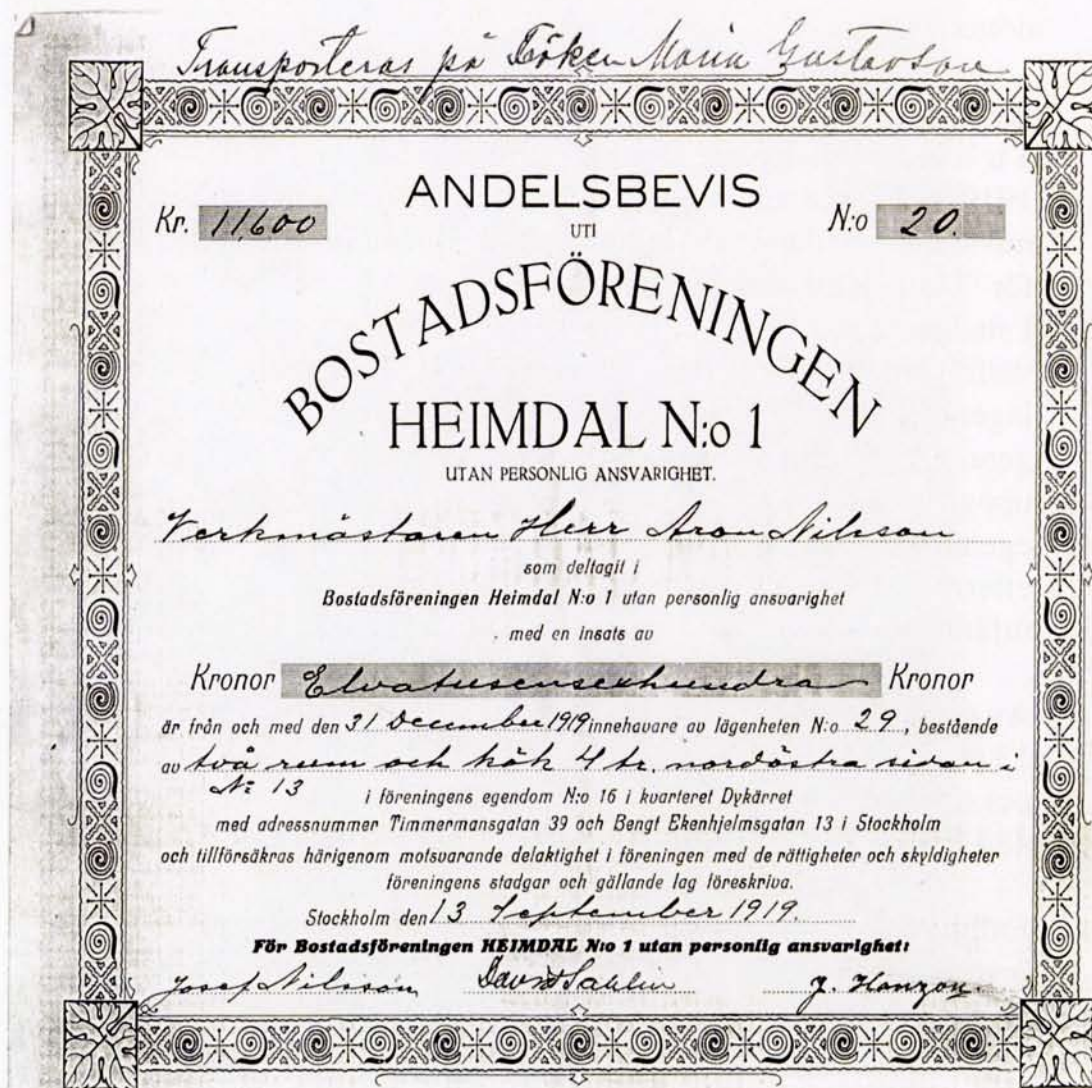 Transporteras på Fröken Maria Gustavson
ANDELSBEVIS
Kr. 11,600
UTI
N:o 20.
BOSTADSFÖRENINGEN
HEIMDAL N:o 1
UTAN PERSONLIG ANSVARIGHET.
Verkmästaren Herr Aron Nilsson
som deltagit i
Bostadsföreningen Heimdal N:o 1 utan personlig ansvarighet
med en insats av
Kronor Elvatusensexhundra Kronor
är från och med den 31 December 1919 innehavare av lägenheten N:o 29, bestående
av två rum och kök 4 tr. nordöstra sidan i
No 13
i föreningens egendom N:o 16 i kvarteret Dykärret
med adressnummer Timmermansgatan 39 och Bengt Ekenhjelmsgatan 13 i Stockholm
och tillförsäkras härigenom motsvarande delaktighet i föreningen med de rättigheter och skyldigheter
föreningens stadgar och gällande lag föreskriva.
Stockholm den 13 September 1919.
För Bostadsföreningen HEIMDAL N:o 1 utan personlig ansvarighet:
Josef Nilsson David Sahlin J. Hanzon